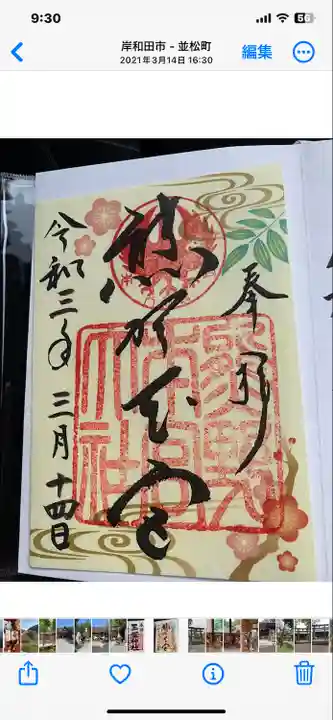 9:30
56
岸和田市 - 並松町
2021年3月14日 16:30
編集
奉拝
熊野大宮
令和三年 三月 十四日